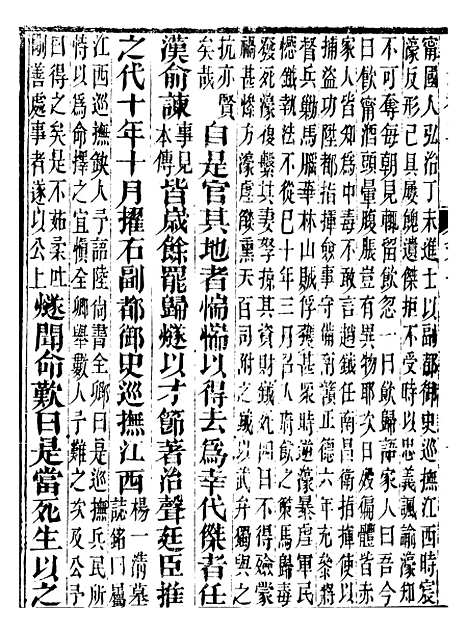 甯國人弘治丁未進士以副都御史巡撫江西時宸
濠反形已具屡餽遺傑拒不受時以忠義諷諭濠知
不可奪每朝見輒留飲忽一日飲歸語家人曰吾今
日飲甯酒頭暈腹脹豈有異物耶次日偏體皆赤
家人皆知爲中毒不敢言南昌衛指揮使以
捕盜功陞都指揮僉事守備南贛正德六年充參將
督兵勦馬腦華林山賊俘獲甚衆時逆濠暴虐軍民
鉞執法不從十年三月召入府飲之藥馬歸毒
發死濠復繫其妻孥掠其財鉞死不得殮蒙
禍甚慘方濠虐熏天百司附之鉞以武弁獨與之
抗亦賢
矣哉
自是官其地者惴惴以得去爲幸代傑者任
漢俞諫
事見
本傳
皆歲餘罷歸燧以才節著治聲廷臣推
之代十年十月擢右副都御史巡撫江西
楊一淸墓
誌銘曰屬
江西巡撫欽人予語陸尙書全卿曰是巡撫兵民所
恃以爲命擇之宜愼全卿舉數人予難之矣及公予
曰得之矣是不茹柔吐
剛善處事者遂以公上
燧聞命歎曰是當死生以之